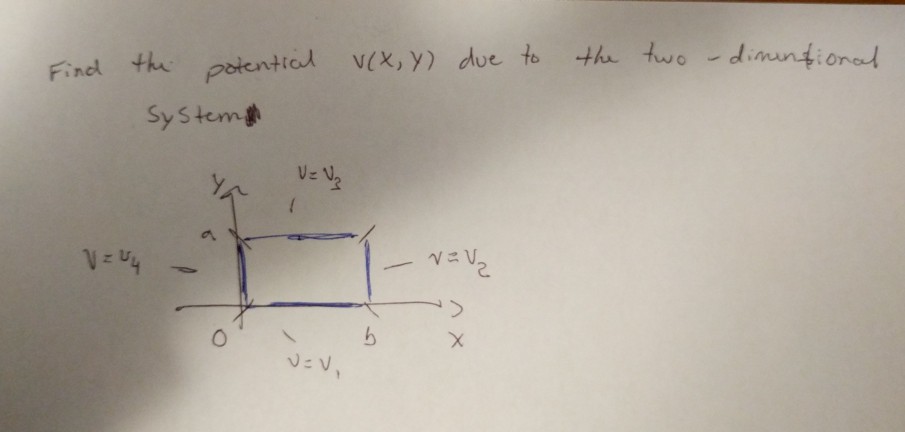 Find the potential V(X, Y) due to the two - dimensional
System
y
V = V3
a
V = V4
V = V2
0
b
X
V = V1